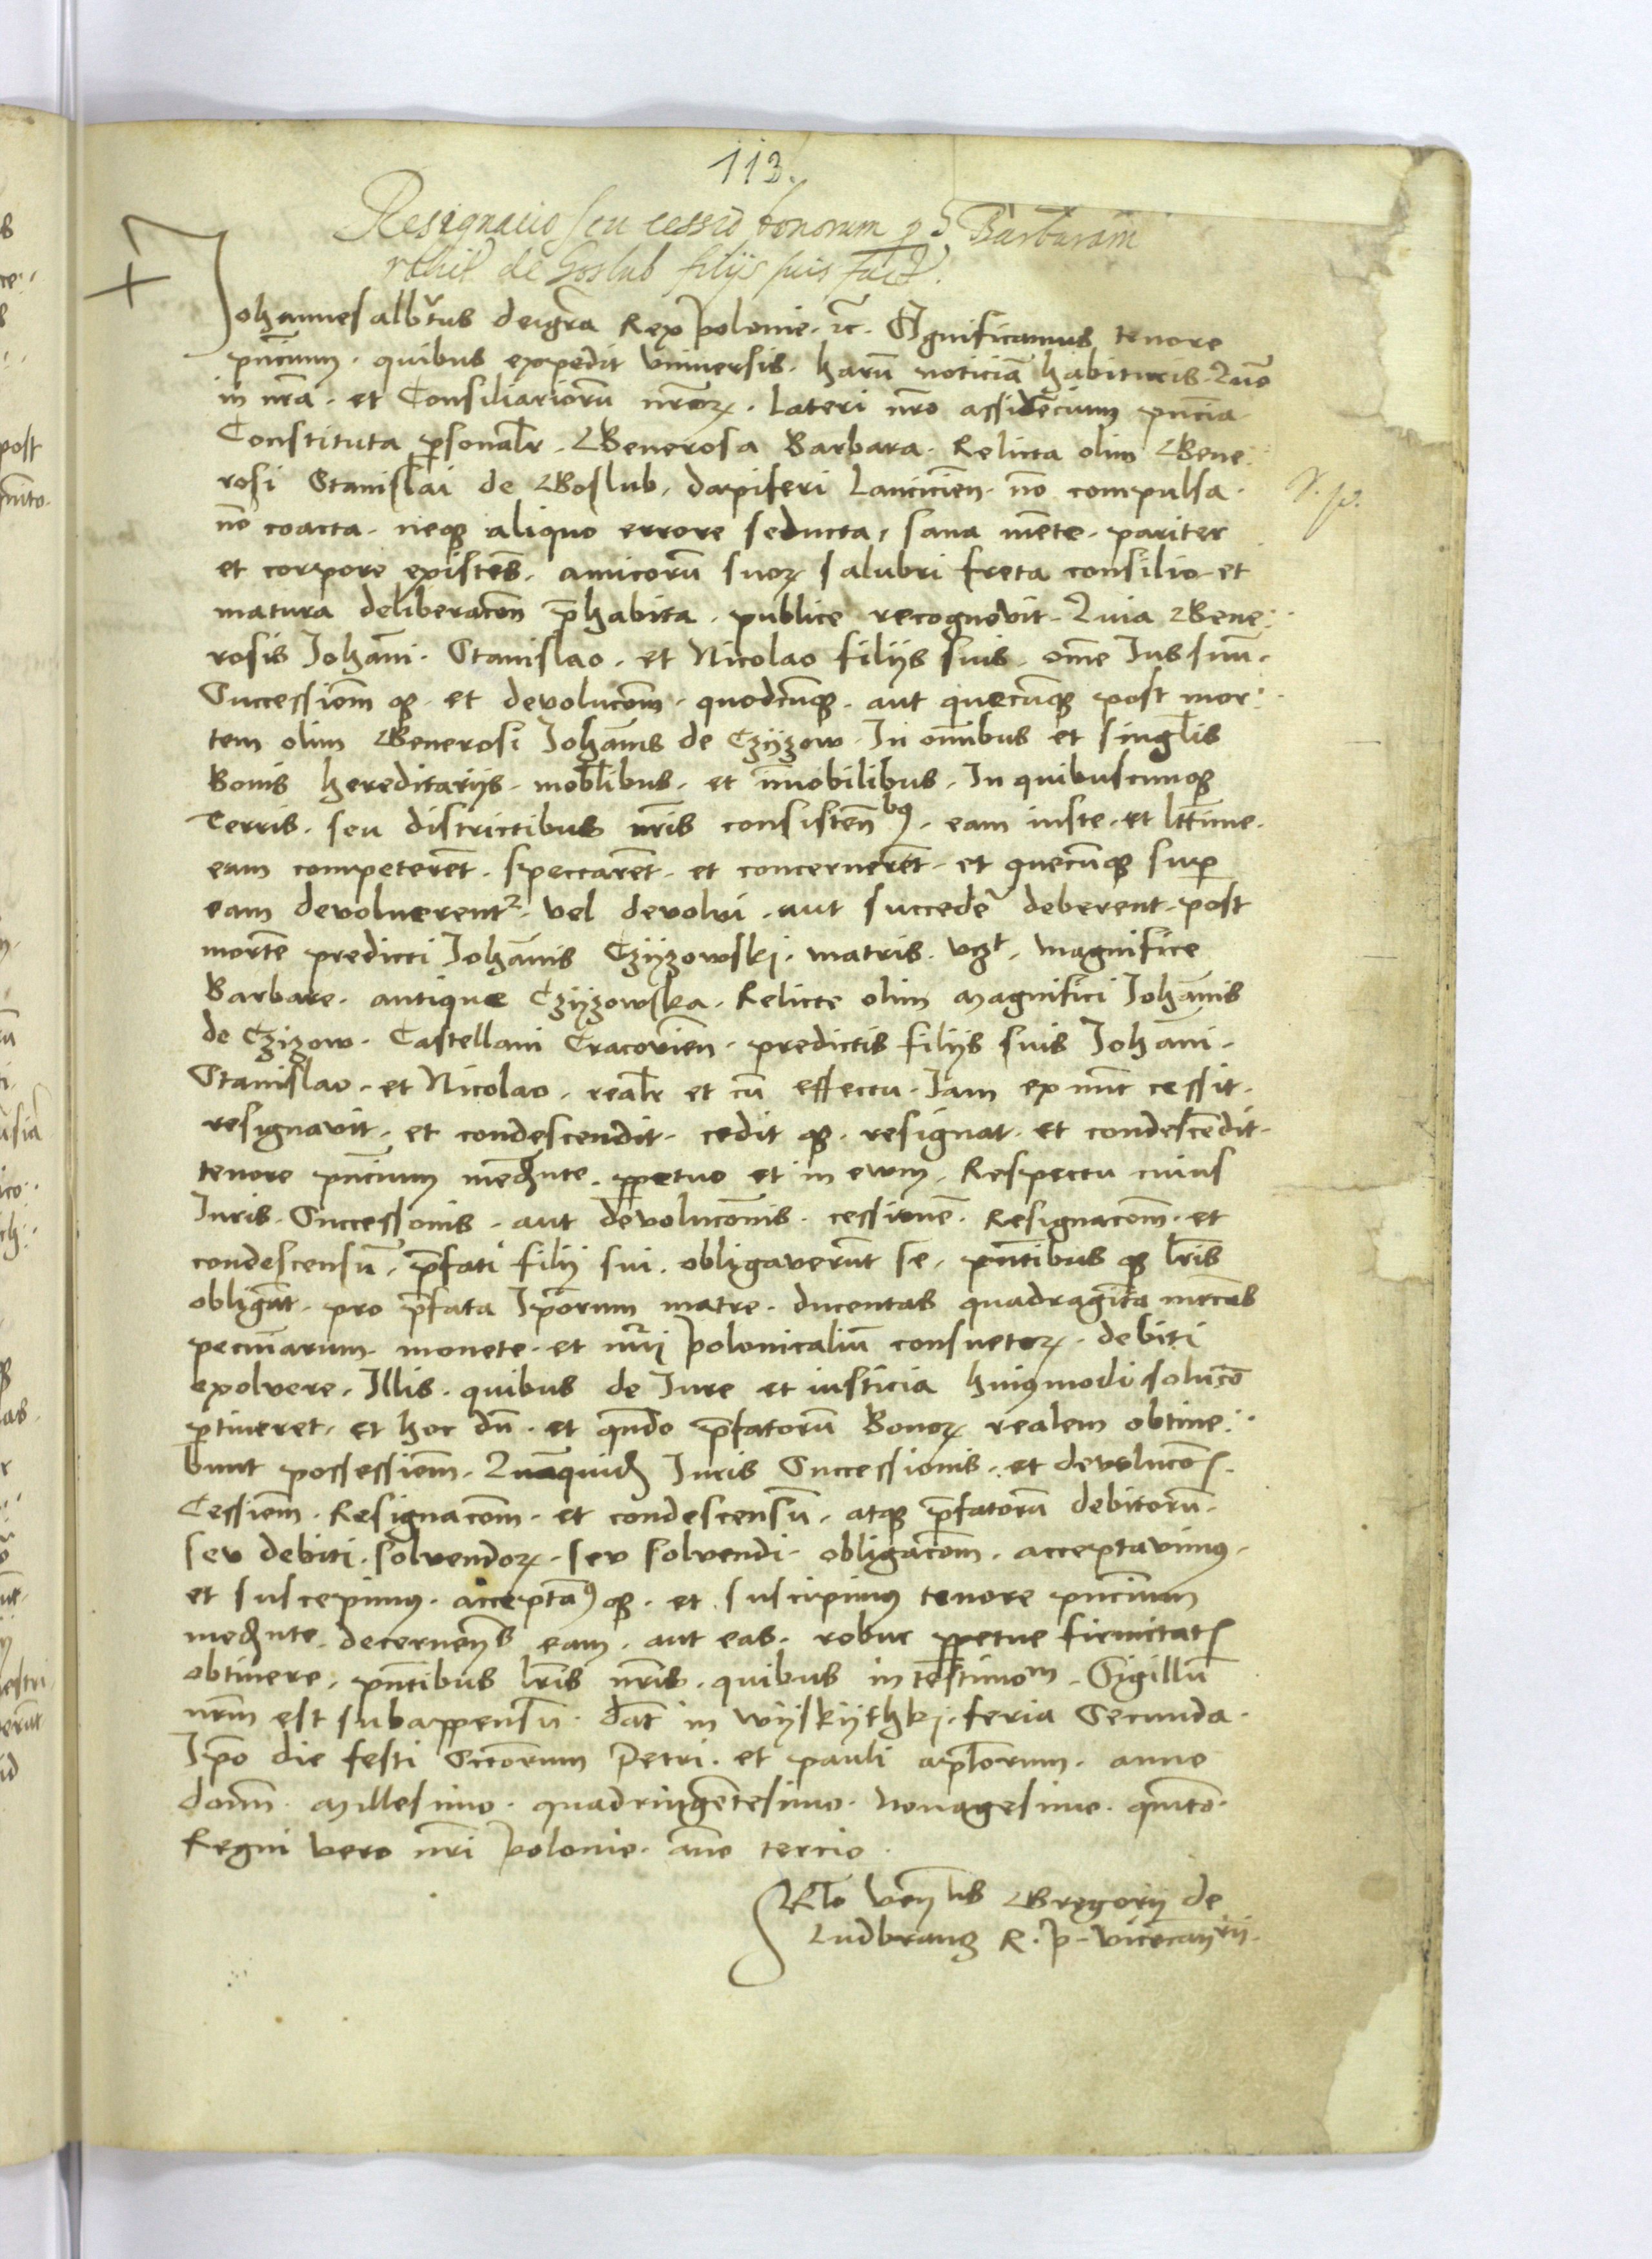 113.
Resignacio seu cessio bonorum p d Barbaram
relictā de Goslub filijs suis facta.
Johannes albertus dei gra Rex polonie ꝛc. Significamus tenore
pñcium. quibus expedit vniuersis. harū noticiā habituris. Quō
in nrā. et Consiliariorū nrōꝝ. Lateri nrō assidēcium pñcia
Constituta psonalr. Generosa Barbara. Relicta olim Gene:
rosi Stanislai de Goslub, dapiferi Lancicieñ. nō compulsa.
nō coacta. neqꝫ aliquo errore seducta, sana mēte. pariter
et corpore existēs. amicorū suoꝝ salubri freta consilio et
matura deliberacōn p̄habita. publice recognovit. Quia Gene:
rosis Johāni. Stanislao. et Nicolao filijs suis. om̄e Jus suū.
Successiom̄ qꝫ. et devolucōm. quodcūqꝫ. aut quecūqꝫ post mor:
tem olim Generosi Johānis de Czyzow. In om̄ibus et singl̄is
Bonis hereditarijs. mobl̄ibus. et īmobilibus. In quibuscunqꝫ
Terris. seu districtibus nr̄is consisteñ bꝰ. eam iuste. et lt̄time.
eam competerēt. spectarēt. et concernerēt. et quecūqꝫ sup
eam devoluerentᷣ. vel devolui. aut succedē deberent. post
mortē predicti Johānis Czyzowski. matris. vꝫt. magnifice
Barbare. antique Czyzowska. Relicte olim magnifici Johānis
de Czizow. Castellani Cracovieñ. predictis filijs suis Johāni.
Stanislao. et Nicolao. realr et cū effectu. Jam ex nūc cessit.
resignavit. et condescendit. cedit qꝫ. resignat. et condescēdit.
tenore pñcium medꝫnte. ꝑpetuo et in ewm. Respectu cuius
Juris. Successionis. aut devolucōnis. cessionē. Resignacōm. et
condescensū. p̄fati filij sui. obligaverūt se. pñtibus qꝫ lr̄is
obligāt. pro p̄fata Ip̄orum matre. ducentas quadraginta mrcas
pecuniarum. monete. et nūi polonicaliū consuetoꝝ. debiti
exolvere. Illis. quibus de Jure et iusticia huiusmodi solucō
ptineret. et hoc dū. et qn̄do p̄fatorū Bonoꝝ realem obtine:
bunt possessiem̄. Quāquidꝫ Juris Successionis. et devolucōs.
Cessiem̄. Resignacōm. et condescensū. atqꝫ p̄fatorū debitorū.
seu debiti. solvendoꝝ. seu solvendi. obligacōm. acceptavimꝰ.
et suscepimꝰ. acceptāꝰ qꝫ. et suscipimꝰ tenore pñcium
medꝫnte. decerneñs eam. aut eas. robur ꝑpetue firmitatꝭ
obtinere. pñtibus lr̄is nr̄is. quibus in testimom̄. Sigillū
nrm̄ est subappensū. dat in Wyskythki. feria Secunda.
Ip̄o die festi Sctōrum Petri. et pauli apl̄orum. anno
domī. millesimo. quadringentesimo. Nonagesimo. quīto.
Regni vero nrī polonie. anō tercio.
Rlo Veñlis Gregorij de
Ludbrancz R. p. vicecancrij.